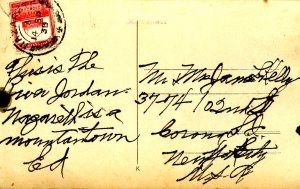 This is the
River Jordan
Nazareth is a
mountain town
Ed
Mr Mrs James Kelly
3774 102nd St
Corona L I
New York City